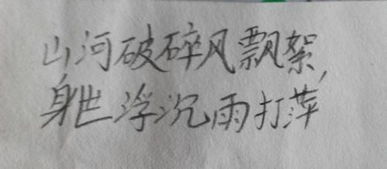 山河破碎风飘絮,
身世浮沉雨打萍